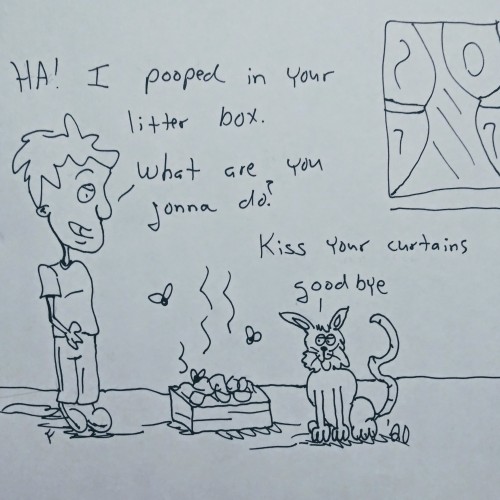 HA! I pooped in your
litter box.
What are you
gonna do?
Kiss your curtains
goodbye
'20